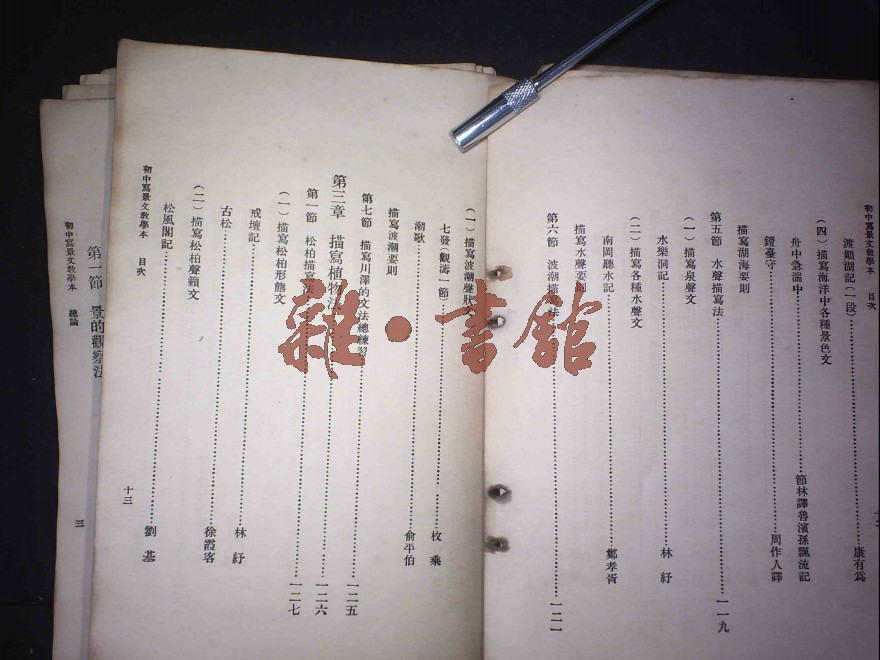 初中寫景文教學本 目次
渡頞湖記(一段)……康有爲
(四)描寫海洋中各種景色文
舟中急湍中……節林譯魯濱孫飄流記
鐙臺守……周作人譯
描寫湖海要則
第五節 水聲描寫法……一一九
(一)描寫泉聲文
水樂洞記……林紓
(二)描寫各種水聲文
南岡聽水記……鄭孝胥
描寫水聲要則
第六節 波潮描寫法……一二一
(一)描寫波潮聲狀文
七發(觀濤一節)……枚乘
潮歌……俞平伯
描寫波潮要則
第七節 描寫川澤的文法總練習……一二五
第三章 描寫植物法……一二六
第一節 松柏描寫法……一二七
(一)描寫松柏形態文
戒壇記……林紓
古松……徐霞客
(二)描寫松柏聲籟文
松風閣記……劉基
初中寫景文教學本 目次
十三
第一節 景的觀察法
初中寫景文教學本 總論
三
雜·書館